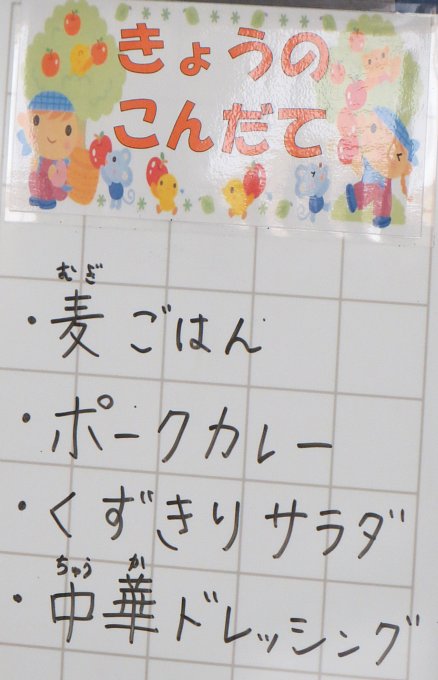 きょうの
こんだて
むぎ
・麦ごはん
・ポークカレー
・くずきりサラダ
ちゅう か
・中華ドレッシング